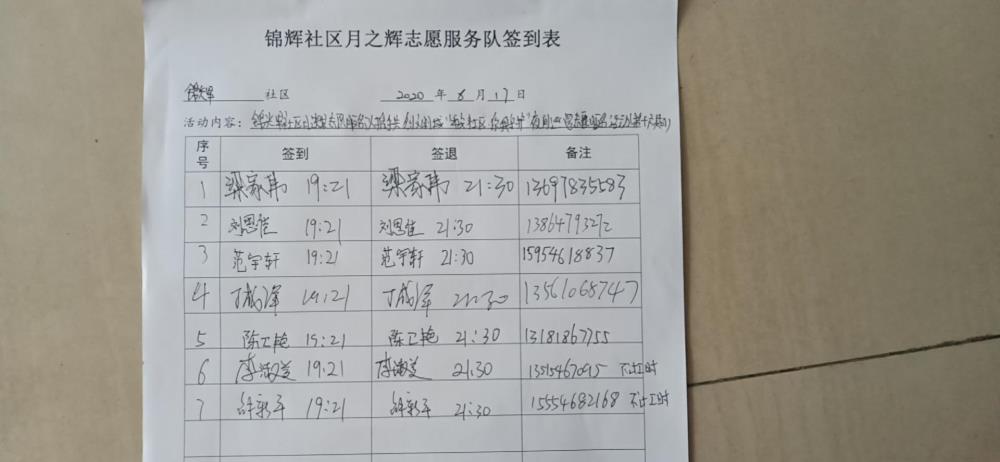 锦辉社区月之辉志愿服务队签到表
锦辉 社区 2020 年 8 月 17 日
活动内容：
序号 签到 签退 备注
1 梁家玮 19:21 梁家玮 21:30 13697835583
2 刘恩佳 19:21 刘恩佳 21:30 13864793272
3 范宇轩 19:21 范宇轩 21:30 15954618837
4 19:21 21:30 13561068747
5 陈卫艳 19:21 陈卫艳 21:30 13181867755
6 李淑芝 19:21 李淑芝 21:30 13515467095 不计工时
7 19:21 21:30 15554682168 不计工时